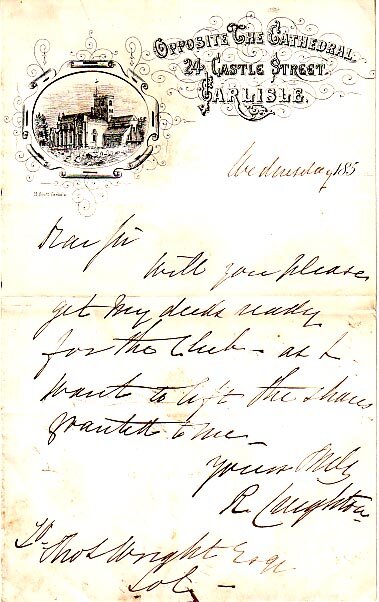 OPPOSITE THE CATHEDRAL,
24, CASTLE STREET,
CARLISLE.
Wednesday 185
Dear Sir
Will you please
get my deeds ready
for the Club - as I
want to lift the shares
granted to me -
Yours truly
R.
To
Thos Wright Esqr
Sol -